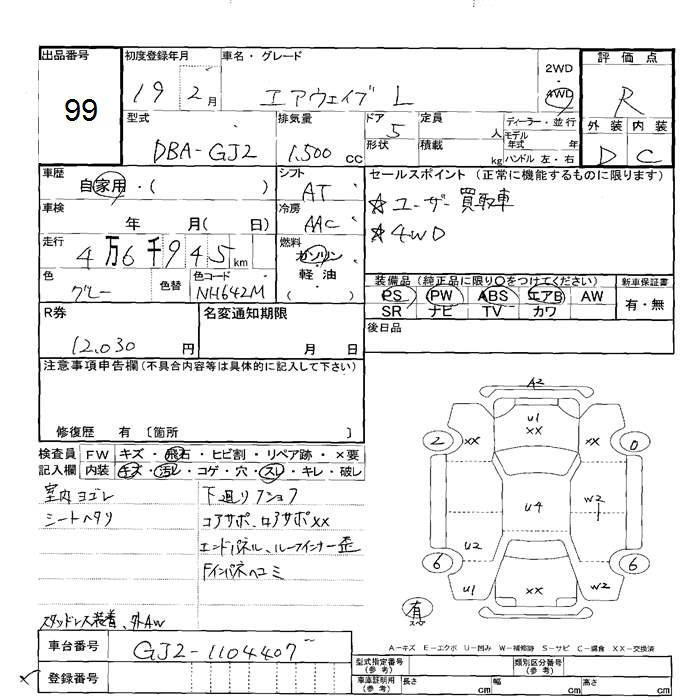 出品番号
99
初度登録年月
19 2月
車名・グレード
エアウェイブ L
2WD
4WD
評価点
R
外装 内装
D C
型式
DBA-GJ2
排気量
1,500 cc
ドア
5
形状
定員
人
積載
kg
ディーラー・並行
モデル年式 年
ハンドル 左・右
車歴
自家用・( )
シフト
AT
セールスポイント (正常に機能するものに限ります)
☆ユーザー買取車
☆4WD
車検
年 月( 日)
冷房
AAC
走行
4万6千945km
燃料
ガソリン
軽油
( )
色
グレー
色替
色コード
NH642M
装備品(純正品に限り○をつけてください)
PS PW ABS エアB AW
SR ナビ TV カワ
新車保証書
有・無
R券
12,030 円
名変通知期限
月 日
後日品
注意事項申告欄(不具合内容等は具体的に記入して下さい)
修復歴 有 〔箇所 〕
検査員記入欄
FW キズ・飛石・ヒビ割・リペア跡・×要
内装 キズ・汚レ・コゲ・穴・スレ・キレ・破レ
室内ヨゴレ
シートヘタリ
下廻り
コアサポ、ロアサポXX
エンドパネル、ルーフインナー歪
Fインパネヘコミ
スタッドレス装着、外AW
A2
U1
XX
2
XX
XX
0
U4
W2
1
U2
6
6
U1
XX
W2
有
スペ
A-キズ E-エクボ U-凹み W-補修跡 S-サビ C-腐食 XX-交換済
車台番号
GJ2-1104407
登録番号
型式指定番号(参考)
類別区分番号(参考)
車庫証明用(参考)
長さ cm
幅 cm
高さ cm